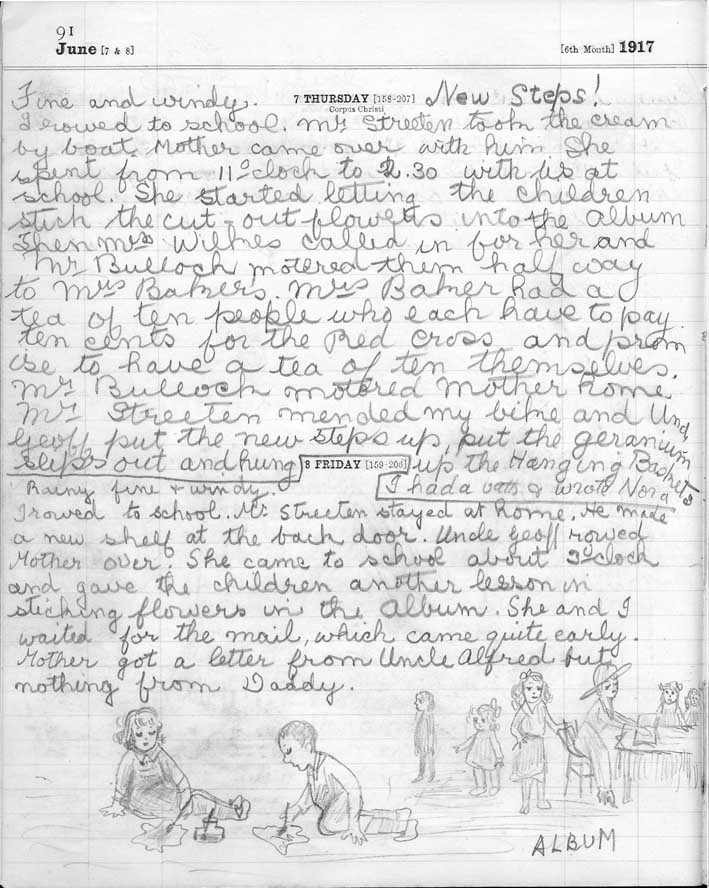 91
June [7 & 8] [6th Month] 1917
Fine and windy. 7 THURSDAY [158-207] New Steps!
Corpus Christi
I rowed to school. Mr Streeten took the cream
by boat. Mother came over with him. She
spent from 11 o'clock to 2.30 with us at
school. She started letting the children
stick the cut-out flowers into the album
Then Mrs Wilkes called in for her and
Mr Bulloch motored them half way
to Mrs Bakers. Mrs Baker had a
tea of ten people who each have to pay
ten cents for the Red Cross and prom
ise to have a tea of ten themselves.
Mr Bulloch motored Mother home.
Mr Streeten mended my bike and Uncle
Geoff put the new steps up, put the geranium
slips out and hung 8 FRIDAY [159-206] up the Hanging Baskets
Rainy fine & windy. I had a bath & wrote Nora
I rowed to school. Mr Streeten stayed at home. He made
a new shelf at the back door. Uncle Geoff rowed
Mother over. She came to school about 3 o'clock
and gave the children another lesson in
sticking flowers in the album. She and I
waited for the mail, which came quite early.
Mother got a letter from Uncle Alfred but
nothing from Daddy.
ALBUM